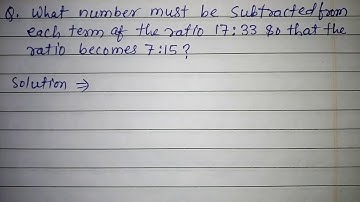 Q. What number must be subtracted from
each term of the ratio 17:33 so that the
ratio becomes 7:15?
Solution ⇒